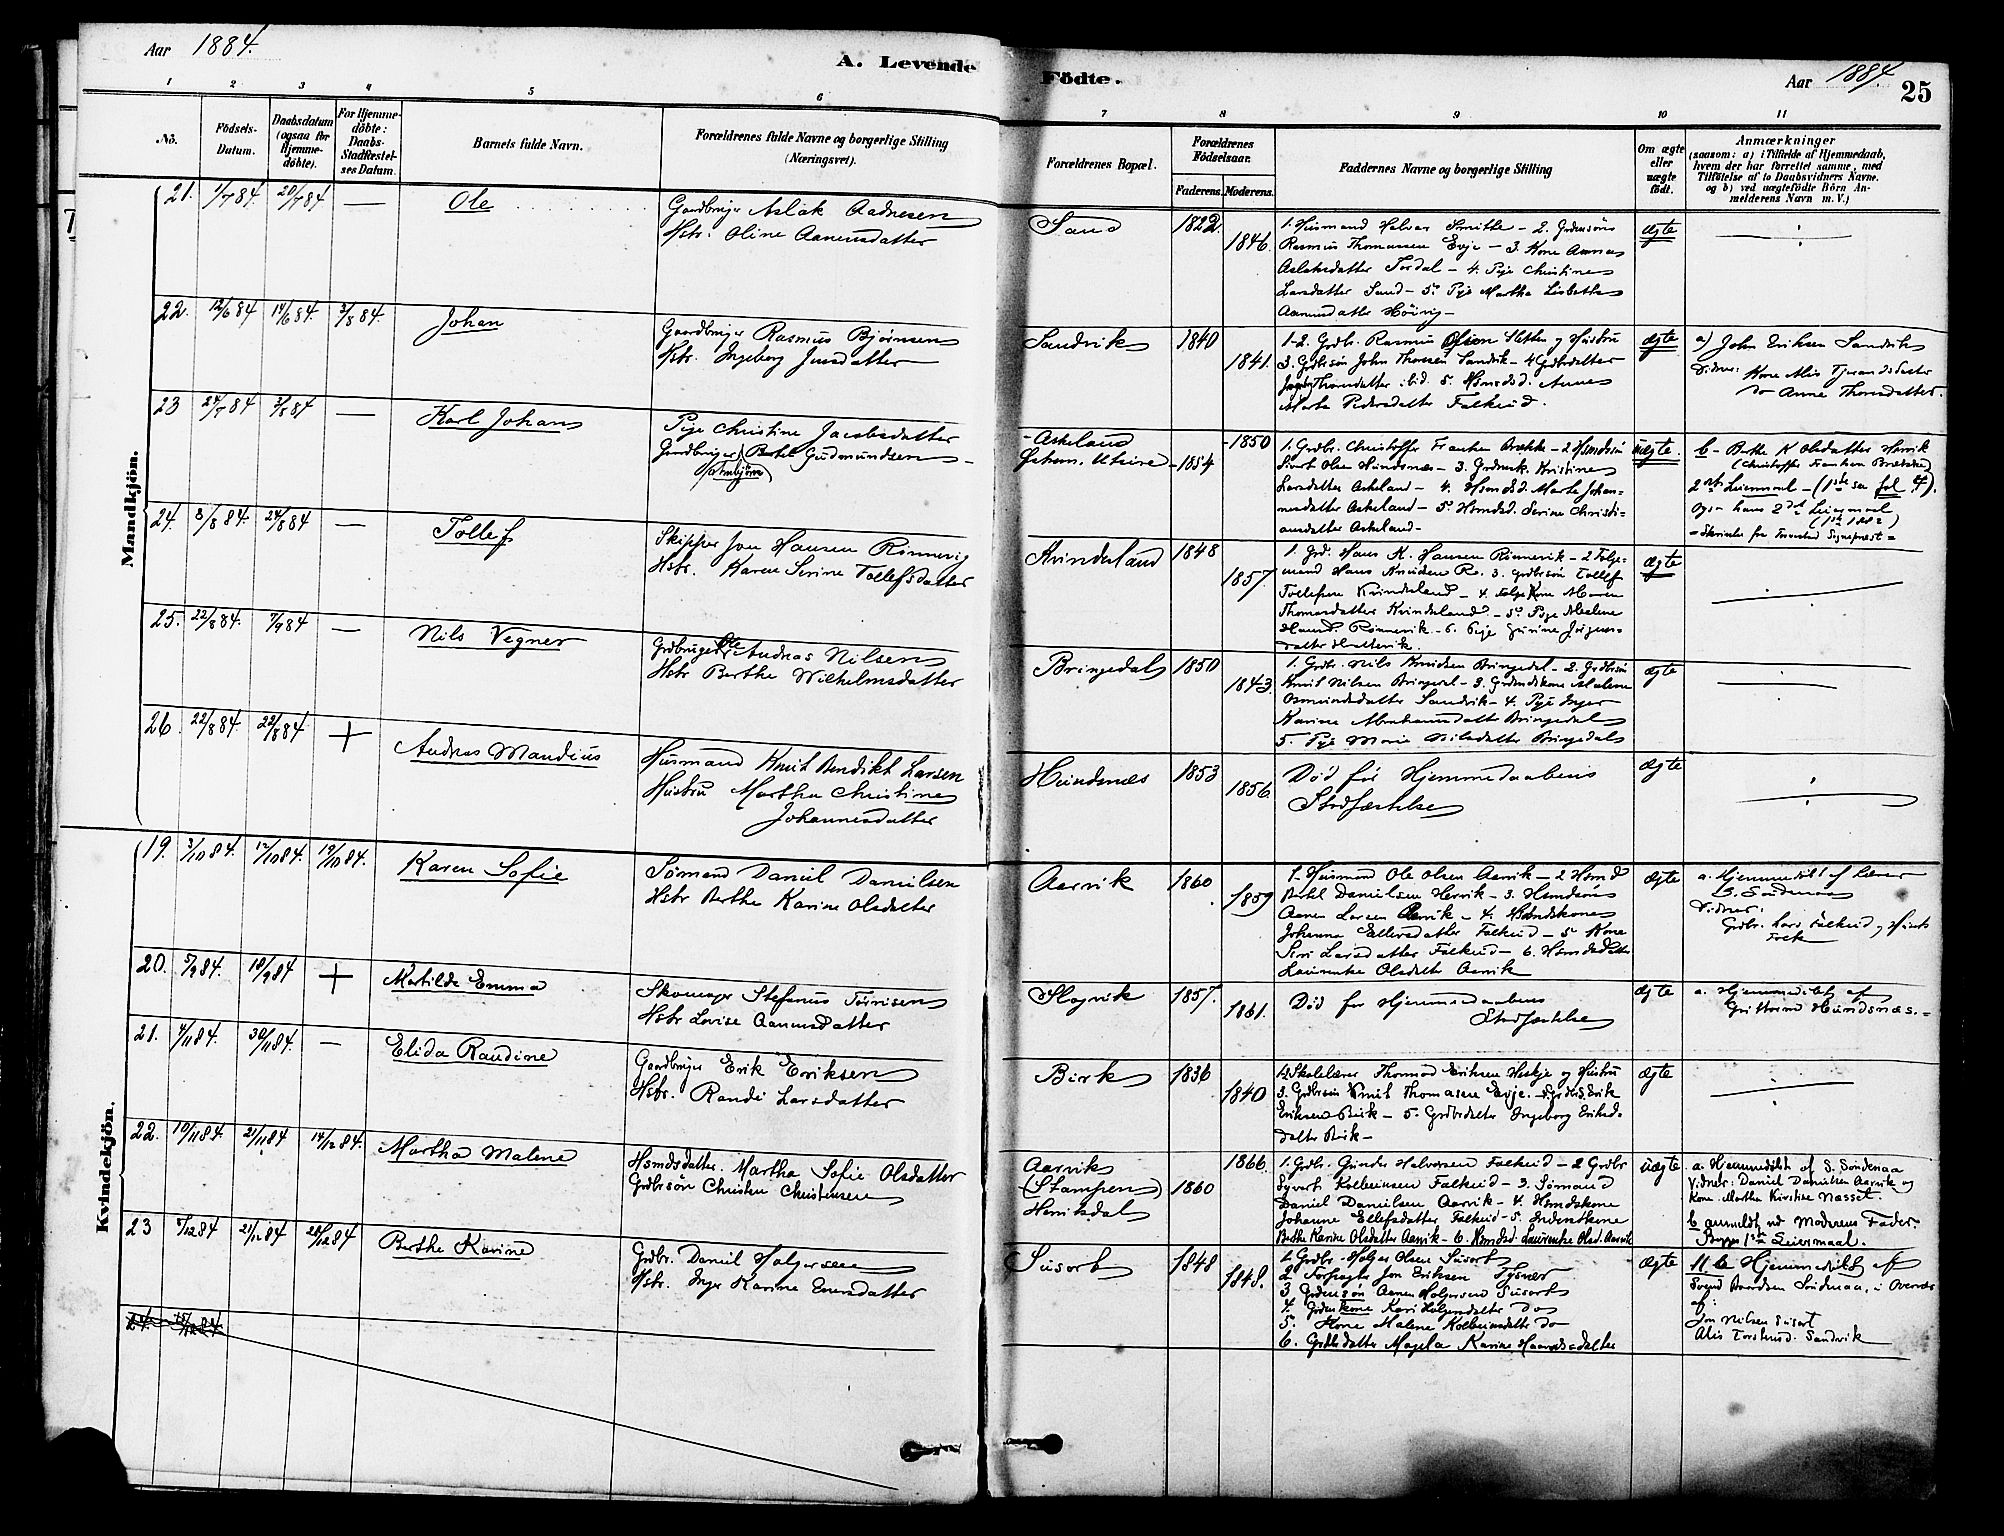 Aar 1884.
A. Levende Födte.
Aar 1884.
25
1 2 3 4 5 6 7 8 9 10 11
No.
Födsels-Datum.
Daabsdatum (ogsaa for Hjemme-döbte).
For Hjemme-döbte: Daabs-Stadfæstel-ses Datum.
Barnets fulde Navn.
Forældrenes fulde Navne og borgerlige Stilling
(Næringsvei).
Forældrenes Bopæl.
Forældrenes Födselsaar.
Faderens. Moderens.
Faddernes Navne og borgerlige Stilling
Om ægte eller uægte födt.
Anmærkninger
(saasom: a) i Tilfælde af Hjemmedaab,
hvem der har forrettet samme, med
Tilföielse af to Daabsvidners Navne,
og b) ved uægtefödte Börn An-
melderens Navn m. V.)
Mandkjön.
21. 1/7 84 20/7 84 — Ole
Gaardbruger Aslak Aadnesen
Hstr. Oline Aanensdatter
Sand 1822. 1846.
1. Husmand Halvor Smithe - 2. Grdmsöns
Rasmus Thomassen Evje - 3. Kone Aanna
Aslaksdatter Tordal - 4. Pige Christine
Larsdatter Sand - 5. Pige Martha Lisbeth
Aamundsdatter
ægte
22. 12/6 84 14/6 84. 3/8 84. Johan
Gaardbruger Rasmus Bjørnsen
Hstr. Ingeborg Jensdatter
Sandvik 1840 1841.
1-2. Grdbr. Rasmus Olsen Sletten og Hustru
3. Grdbrsön John Thorsen Sandvik - 4 Grdbrdatter
Thorsdatter ibid. 5. Hsmdsd. Anne
Marta Pedersdatter Falkeid.
ægte
a) John Eriksen Sandvik
Vidner: Kone Alis Tjerandsdatter
do Anne Thorsdatter.
23 24/7 84 3/8 84 — Karl Johan
Pige Christine Jacobsdatter
Gardbruger Bertel Gudmundsen
Askeland
Utsire
1854 1850
1. Grdbr. Christoffer Franken - 2 Hsmdsön
Sivert Olsen Hundsnæs - 3. Kristine
Larsdatter Askeland - 4. Hsmdsd. Marte Johan-
nesdatter Askeland - 5. Hsmdsd. Serine Christi-
ansdatter Askeland -
uægte.
b - Berthe K Olsdatter Hervik
2det Leiermaal - (1ste see fol 4).
Ogs. hans 2det Leiermaal
(1ste 1882)
24. 8/8 84. 24/8 84 — Tollef
Skipper Jon Hansen Rönnevig
Hstr. Karen Serine Tollefsdatter
Kvindeland 1848 1857.
1. Grd. Hans K. Hansen Rönnevik - 2 Følge-
mand Hans Knudsen R. 3. Grdbrsön Tollef
Tollefsen Kvindeland - 4. Følge Kone Maren
Thomasdatter Kvindeland - 5. Pige Malene
Hansd. Rönnevik - 6. Pige Gurine Jörgens-
datter
ægte
25. 22/8 84. 7/9 84 — Nils Vegner
Grdbruger Ole Andreas Nilsen
Hstr Berthe Wilhelmsdatter
Bringedal 1850 1843.
1. Grdbr. Nils Knudsen Bringedal - 2. Grdbrsön
Knut Nilsen Bringedal - 3. Grdmdskone Malene
Osmundsdatter Sandvik - 4. Pige Inger
Karine Abrahamsdatt Bringedal
5. Pige Marie Nilsdatter Bringedal
ægte
26 22/8 84. 22/8 84 + Andreas Mandius
Husmand Knut Bendikt Larsen
Hustru Martha Christine
Johannesdatter
Hundsnæs 1853 1856.
Död før Hjemmedaabens
Stadfæstelse
ægte
Kvindekjön.
19. 3/10 84. 12/10 84. 19/10 84. Karen Sofie
Sömand Daniel Danielsen
Hstr Berthe Karine Olsdatter
Aarvik 1860 1859
1. Husmand Ole Olsen Aarvik - 2 Hsmd
Bertel Danielsen Hervik - 3. Hsmdsön
Aanen Larsen Aarvik - 4. Hsmdskone
Johanne Ellefsdatter Falkeid - 5 Kone
Siri Larsdatter Falkeid - 6. Hsmdsdatter
Laurentze Olsdatter Aarvik
ægte
a. Hjemmedöbt af Lærer
S. Söndenaa
Vidner:
Grdbr. Lars Falkeid og Hans
Folk
20. 5/9 84. 18/9 84 + Mathilde Emma
Skomager Stefanus Tönnisen
Hstr Lovise Aanensdatter
Slogvik 1857. 1861.
Död før Hjemmedaabens
Stadfæstelse
ægte
a. Hjemmedöbt af
Guttorm Hundsnæs. -
21. 4/11 84. 30/11 84. — Elida Raudine
Gaardbruger Erik Eriksen
Hstr. Randi Larsdatter
Birk 1836 1840
1.2 Skolelærer Thormod Eriksen Heskje og Hustru
3. Grdbrsön Knut Thomasen Evje. 4. Erik
Eriksen Birk - 5. Grdbrdatter Ingeborg Eriks-
datter Birk -
ægte
22. 19/11 84. 21/11 84 14/12 84. Martha Malene
Hsmdsdatter. Martha Sofie Olsdatter
Grdbrsön Christen Christensen
Aarvik
(Stampen)
1860 1866.
1. Grdbr. Gunder Halvorsen Falkeid - 2 Grdbr
Syvert Kolbeinsen Falkeid - 3. Sömand
Daniel Danielsen Aarvik - 4. Hsmdskone
Johanne Ellefsdatter Falkeid - 5. Inderstkone
Berthe Karine Olsdatter Aarvik - 6. Hsmdsd. Laurentze Olsd. Aarvik
uægte
a. Hjemmedöbt af S. Söndenaa
Vidner: Daniel Danielsen Aarvik og
Kone Martha Kirstine Nasset.
b anmeldt ved Moderens Fader.
Begges 1ste Leiermaal.
23 5/12 84 21/12 84 28/12 84 Berthe Karine
Grdbr. Daniel Holgersen
Hstr. Inger Karine Enersdatter
Susort 1848 1848.
1. Grdbr. Holger Olsen Susort
2 Forpagter Jon Eriksen Tysvær
3 Grdmsön Aanen Holgersen Susort
4. Grdmskone Kari Holgersdatter do
5. Kone Malene Kolbeinsdatter do
6. Grdbrdatter Magela Karine Haavardsdatter
ægte
11 b Hjemmedöbt af
Söndenaa. i Overvær
af:
Jon Nilsen Susort
Alis Torstensd. Sandvik
24. 15/12 84.